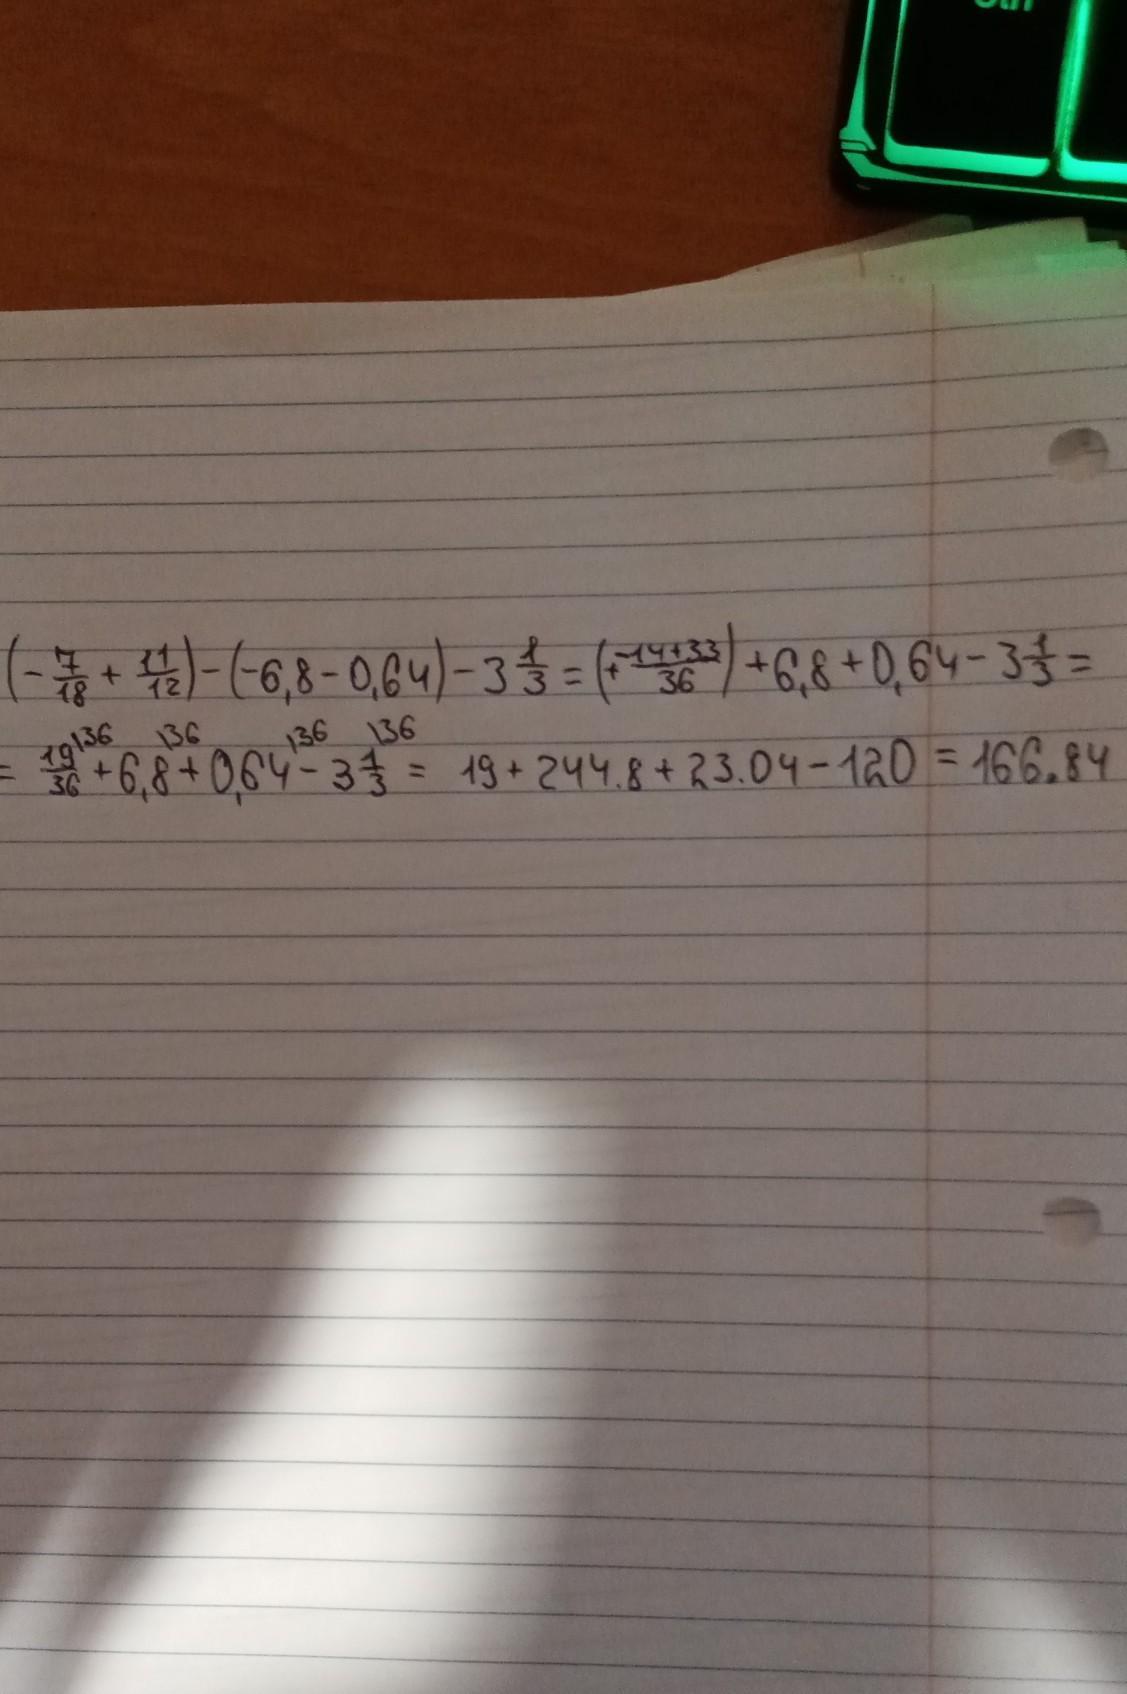 (-7/18 + 11/12) - (-6,8 - 0,64) - 3 1/3 = (+ -14+33/36) + 6,8 + 0,64 - 3 1/3 =
= 19/36 \36 + 6,8 \36 + 0,64 \36 - 3 1/3 \36 = 19 + 244.8 + 23.04 - 120 = 166.84